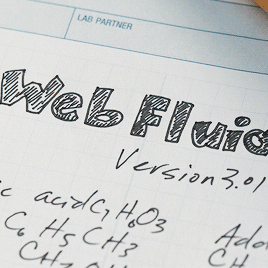 LAB PARTNER
Web Fluid
Version 3.01
acid C₇H₆O₃
C₆H₅CH₃
CH₃
CH